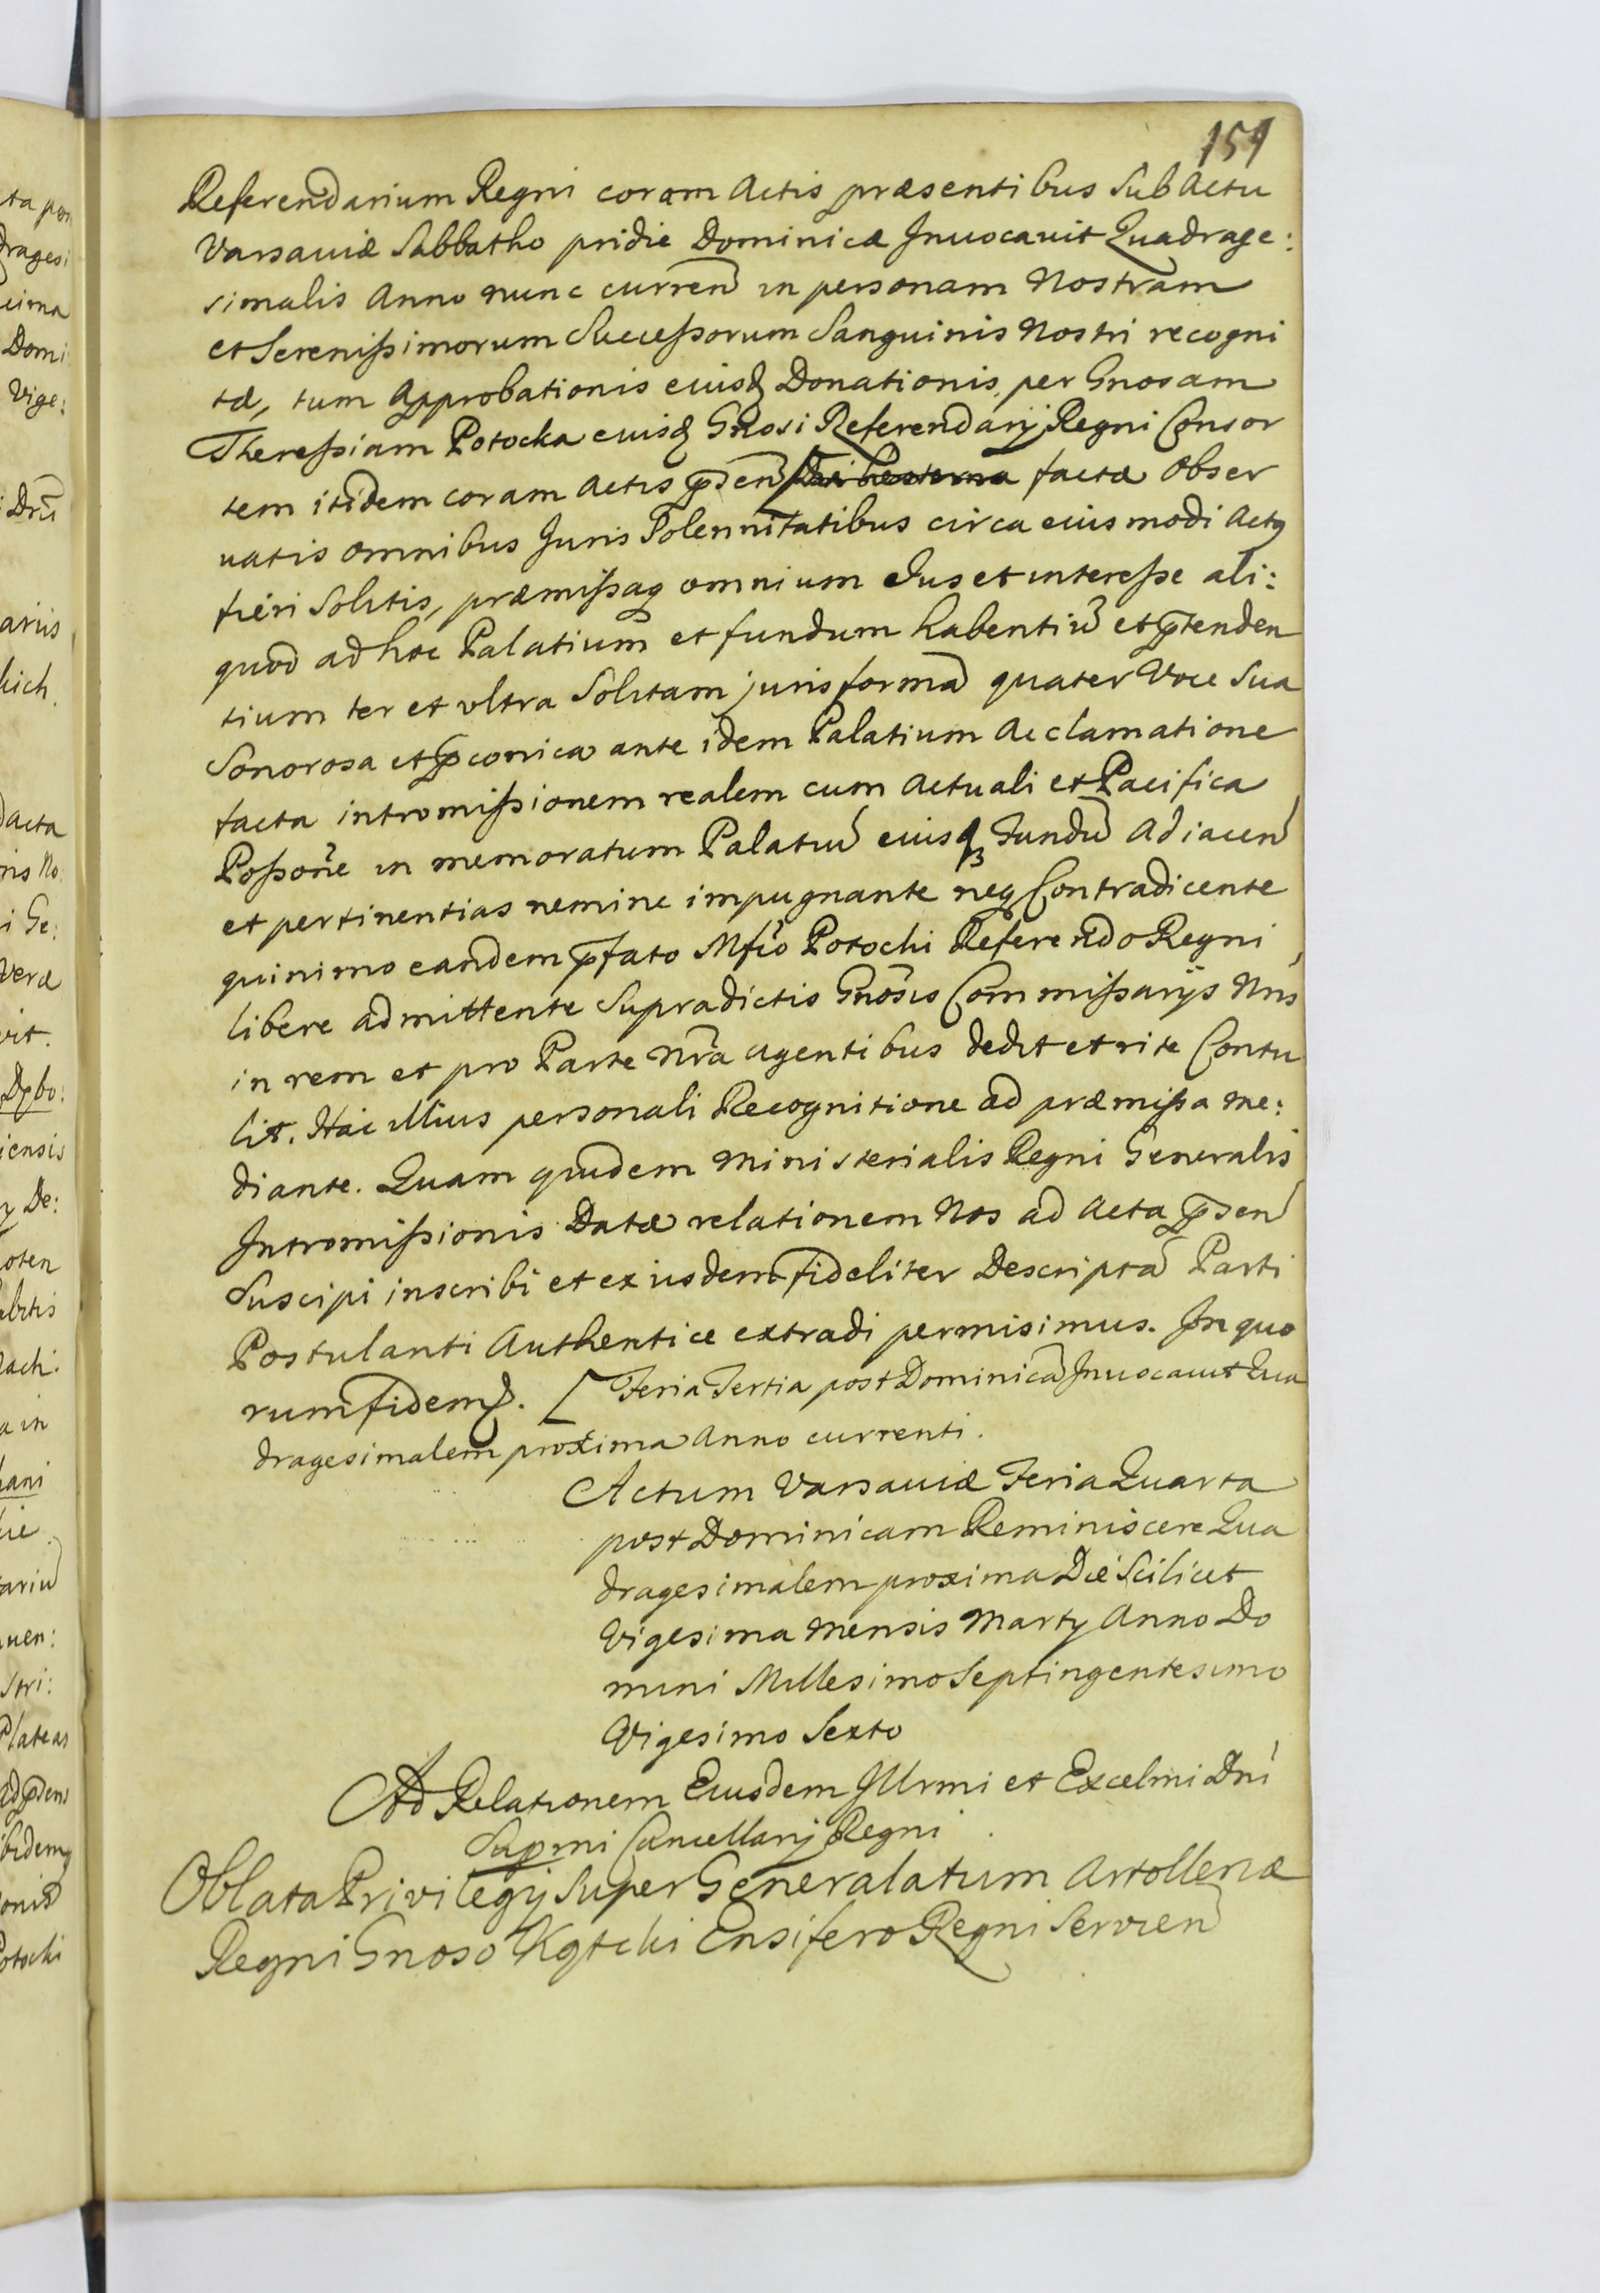 151
Referendarium Regni coram Actis præsentibus Sub Actu
Varsaviæ Sabbatho pridie Dominicæ Invocauit Quadrage:
simalis Anno nunc curren̄ in personam Nostram
et Serenißimorum Succeßorum Sanguinis Nostri recogni
tæ, tum Approbationis eiusd Donationis per Gnosam
Thereßiam Potocka eiusd Gnosi Referendarij Regni Consor
tem itidem coram Actis p̄sen̄ factæ obser
uatis omnibus Juris Solennitatibus circa eiusmodi Actq
fieri Solitis, præmißaq omnium Jus et intereße ali:
quod ad hoc Palatium et fundum habentiū et p̄tenden
tium ter et vltra Solitam juris formā quater Voce Sua
Sonorosa et p̄conica ante idem Palatium Acclamatione
facta intromißionem realem cum Actuali et Pacifica
Poßoñe in memoratum Palatiū eiusq3 Fundū Adiacen̄
et pertinentias nemine impugnante neq Contradicente
quinimo eandem p̄fato Mfico Potocki Referendo Regni
libere admittente Supradictis Gnosis Commißarijs Nris
in rem et pro Parte Nr̄a agentibus dedit et rite Contu
lit. Hac illius personali Recognitione ad præmißa me:
diante. Quam quidem Ministerialis Regni Generalis
Intromißionis Datæ relationem Nos ad Acta p̄sen̄
Suscipi inscribi et ex iisdem fideliter Descriptā Parti
Postulanti Authentice extradi permisimus. In quo
rum fidem. [Feria Tertia post Dominicā Invocauit Qua
dragesimalem proxima Anno currenti.
Actum Varsaviæ Feria Quarta
post Dominicam Reminiscere Qua
dragesimalem proxima Die Scilicet
Vigesima Mensis Martij Anno Do
mini Millesimo Septingentesimo
Vigesimo Sexto
Ad Relationem Eiusdem Illrmi et Excelmi Dni
Supmi Cancellarij Regni
Oblata Privilegij Super Generalatum Artolleriæ
Regni Gnoso Kątcki Ensifero Regni Servien̄